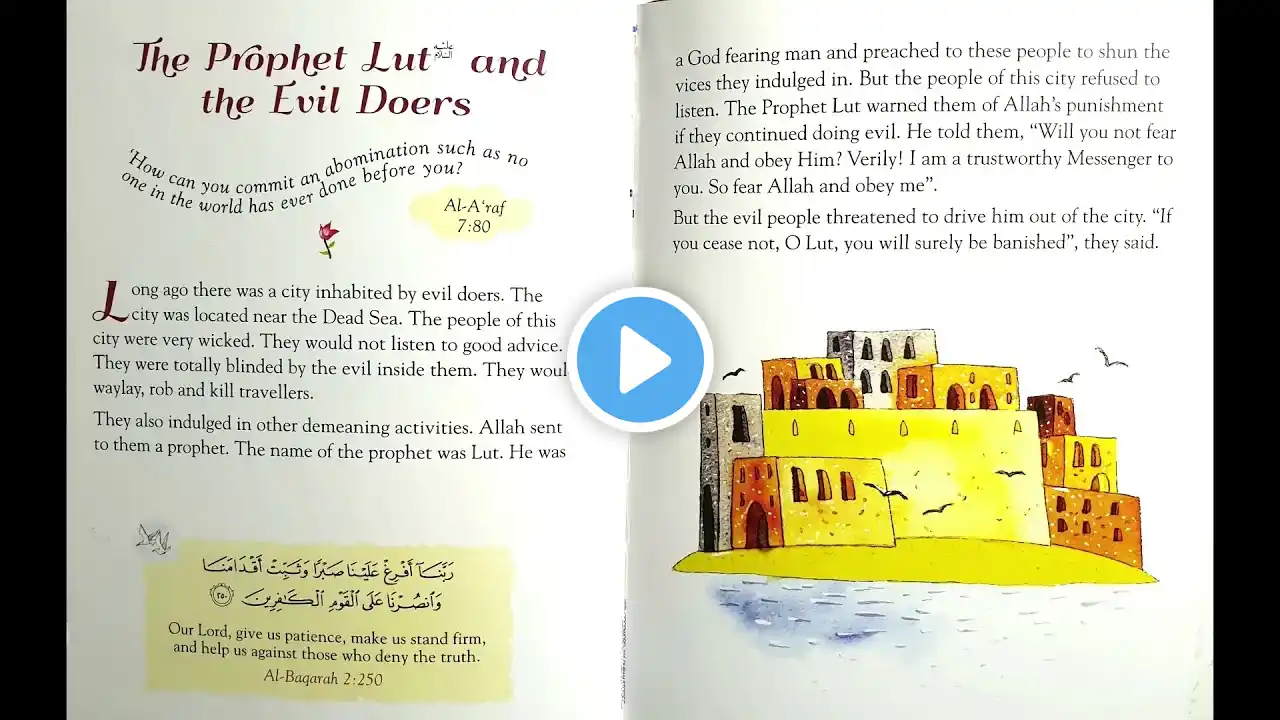 The Prophet Lut عليه السلام and
the Evil Doers
'How can you commit an abomination such as no
one in the world has ever done before you?
Al-A'raf
7:80
Long ago there was a city inhabited by evil doers. The
city was located near the Dead Sea. The people of this
city were very wicked. They would not listen to good advice.
They were totally blinded by the evil inside them. They woul
waylay, rob and kill travellers.
They also indulged in other demeaning activities. Allah sent
to them a prophet. The name of the prophet was Lut. He was
رَبَّنَآ أَفْرِغْ عَلَيْنَا صَبْرًا وَثَبِّتْ أَقْدَامَنَا
وَٱنصُرْنَا عَلَى ٱلْقَوْمِ ٱلْكَـٰفِرِينَ ٢٥٠
Our Lord, give us patience, make us stand firm,
and help us against those who deny the truth.
Al-Baqarah 2:250
a God fearing man and preached to these people to shun the
vices they indulged in. But the people of this city refused to
listen. The Prophet Lut warned them of Allah's punishment
if they continued doing evil. He told them, "Will you not fear
Allah and obey Him? Verily! I am a trustworthy Messenger to
you. So fear Allah and obey me".
But the evil people threatened to drive him out of the city. "If
you cease not, O Lut, you will surely be banished", they said.